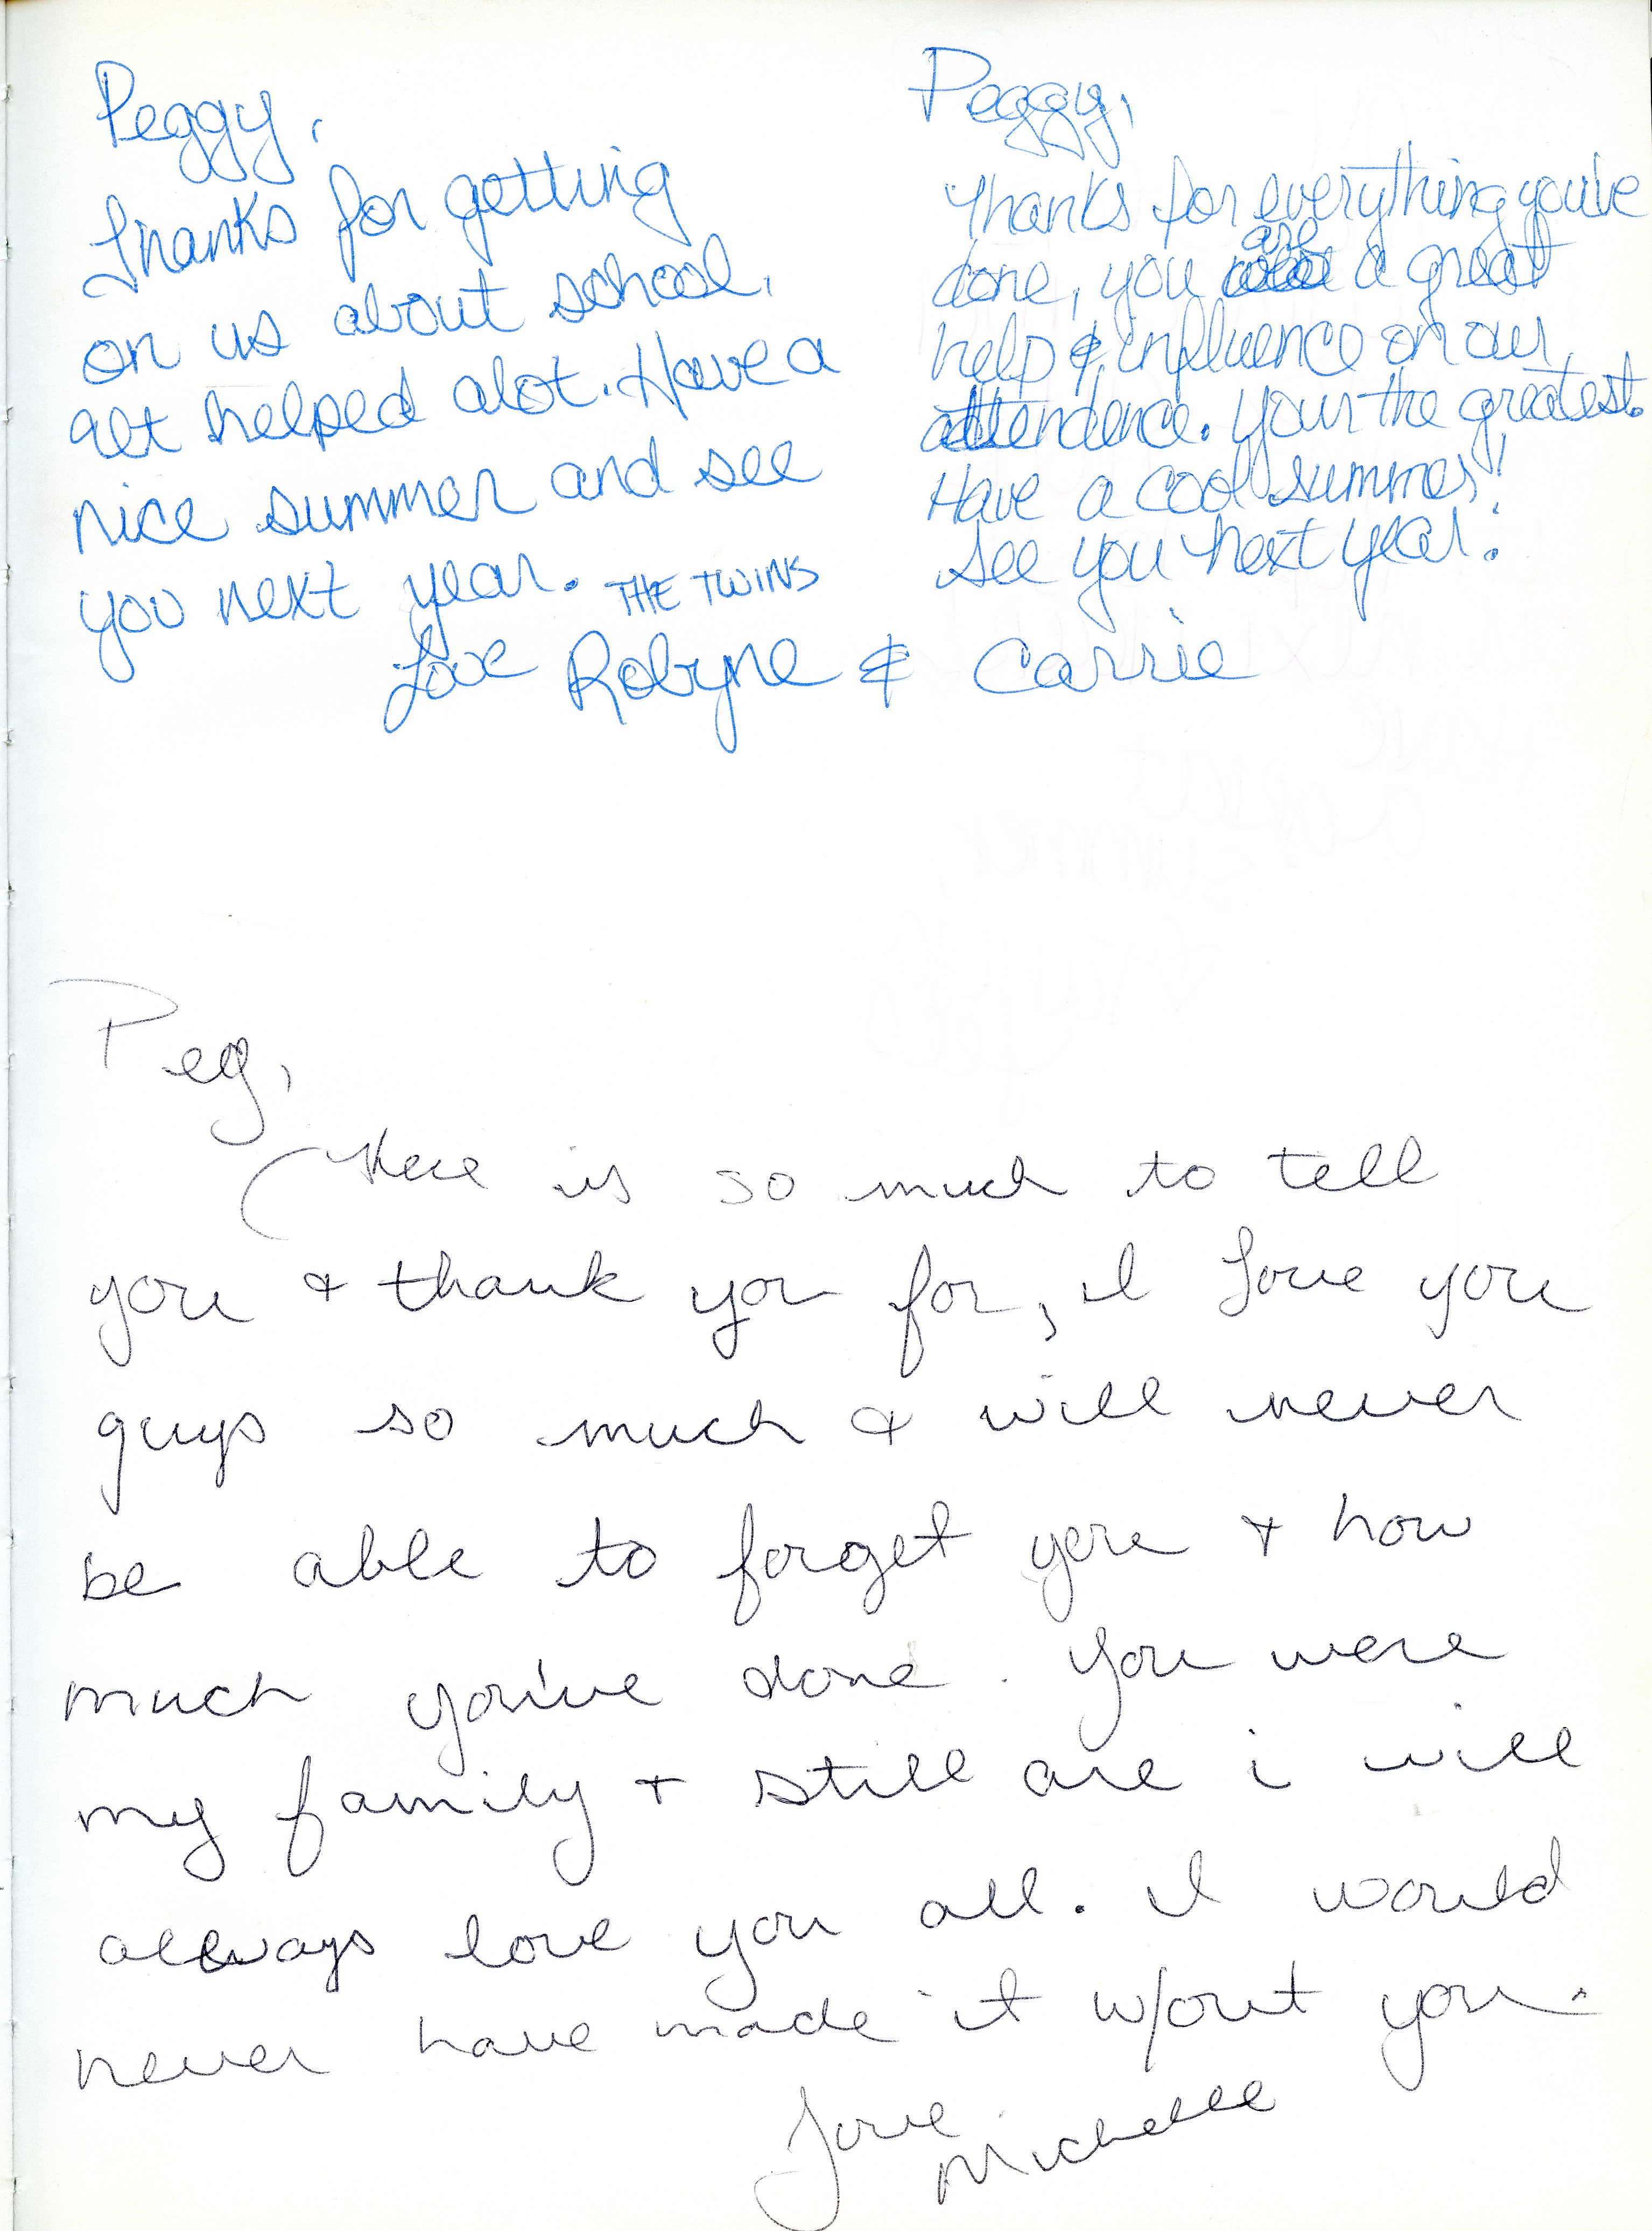 Peggy,
Thanks for getting
on us about school,
it helped alot. Have a
nice summer and see
you next year.
Peggy,
Thanks for everything you've
done, you are a great
help & influence on our
attendence. Your the greatest.
Have a cool summer!
See you next year!
THE TWINS
Love Robyne & Carrie
Peg,
There is so much to tell
you & thank you for, I love you
guys so much & will never
be able to forget you & how
much you've done. You were
my family & still are i will
always love you all. I would
never have made it w/out you.
Love
Michelle